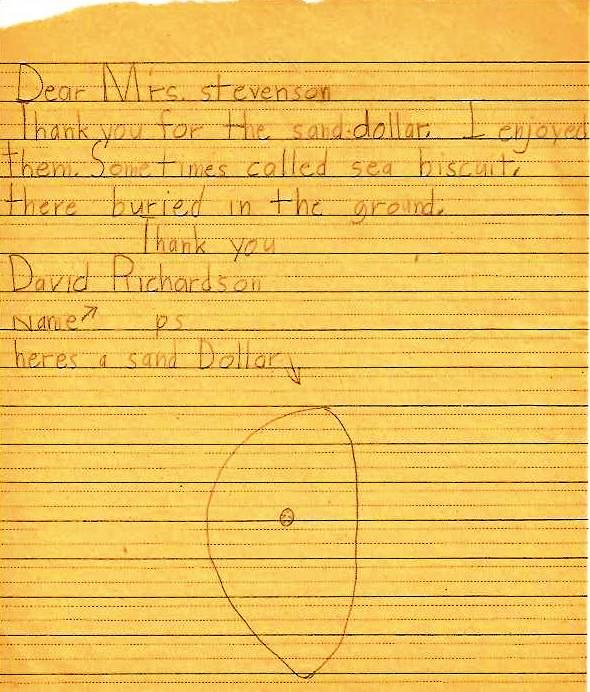 Dear Mrs. stevenson
Thank you for the sand-dollar. I enjoyed
them. Sometimes called sea biscuit.
there buried in the ground.
Thank you
David Richardson
Name↗ ps
heres a sand Dollar↓